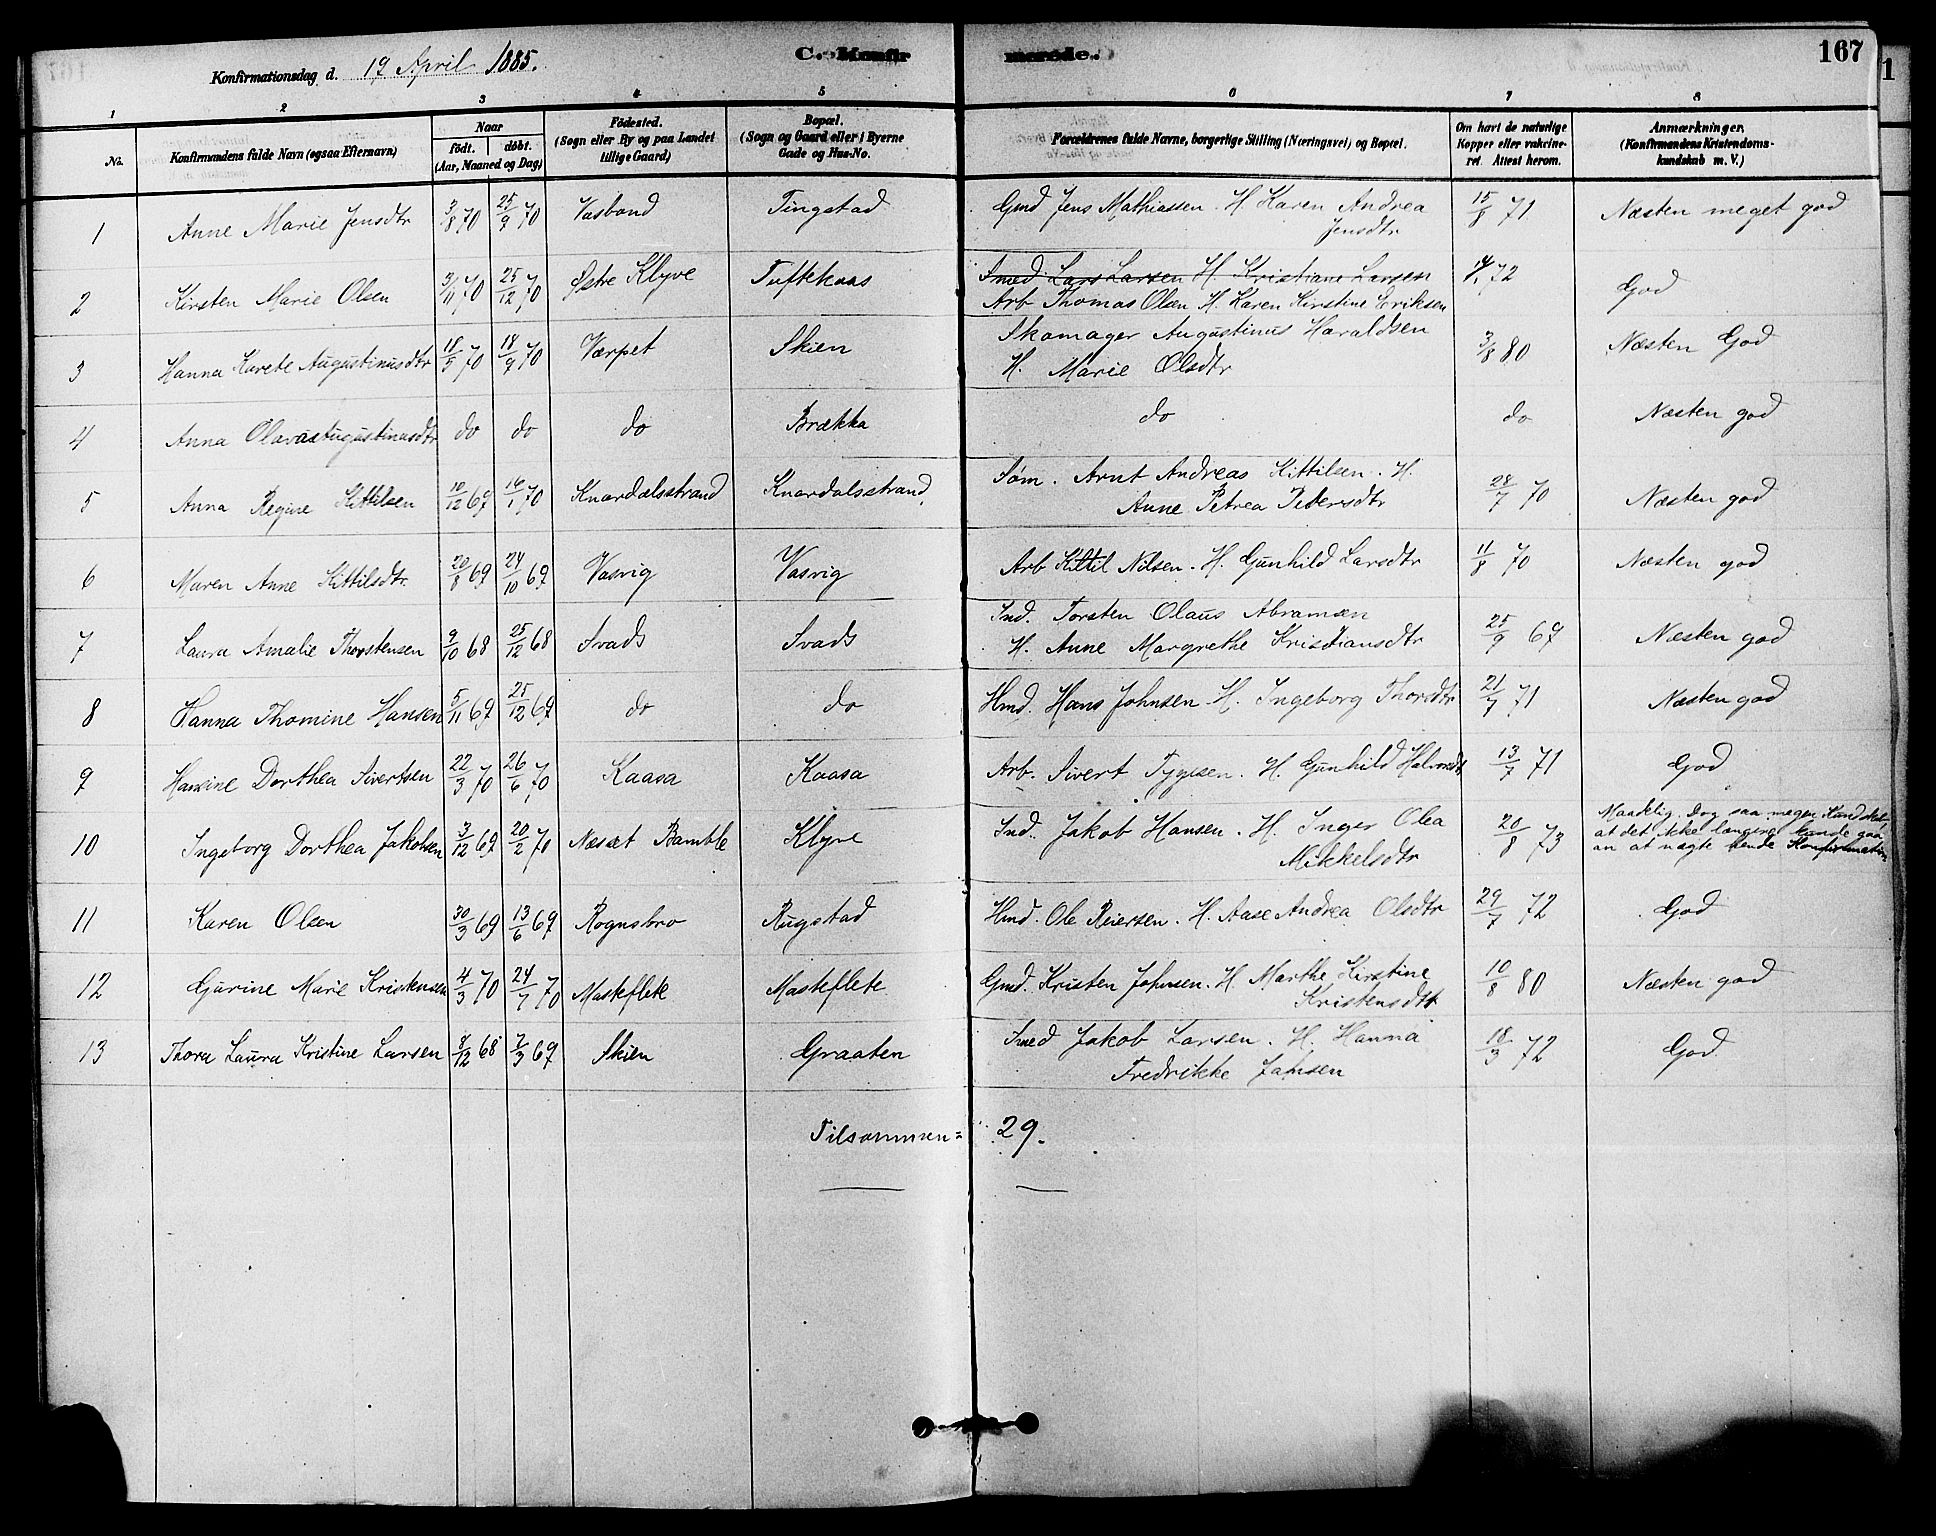 Konfirmationsdag d. 19 April 1885.
C. Konfirmerede.
167
1 2 3 4 5 6 7 8
No.
Konfirmandens fulde Navn (ogsaa Efternavn)
Naar
födt. döbt.
(Aar, Maaned og Dag)
Födested.
(Sogn eller By og paa Landet
tillige Gaard)
Bopæl.
(Sogn og Gaard eller i Byerne
Gade og Hus-No.
Forældrenes fulde Navne, borgerlige Stilling (Næringsvei) og Bopæl.
Om havt de naturlige
Kopper eller vakcine-
ret. Attest herom.
Anmærkninger.
(Konfirmandens Kristendoms-
kundskab m. V.)
1 Anne Marie Jensdtr 3/8 70 25/9 70 Vasbond Tingstad Gmd Jens Mathiassen H. Karen Andrea
Jensdtr 15/8 71 Næsten meget god
2 Kirsten Marie Olsen 3/11 70 25/12 70 Østre Klyve Tuftekaas Smed Lars Larsen H. Kristiane Larsen
Arb Thomas Olsen H. Karen Kirstine Eriksen 72 God
3 Hanna Karete Augustinusdtr 18/5 70 18/9 70 Værpet Skien Skomager Augustinus Haraldsen
H. Marie Olsdtr 3/8 80 Næsten God
4 Anna Olava Augustinusdtr do do do Brækka do do Næsten god
5 Anna Regine Kittilsen 10/12 69 16/1 70 Knardalsstrand Knardalsstrand Søm. Arnt Andreas Kittilsen. H.
Anne Petrea Petersdtr 28/7 70 Næsten god
6 Maren Anne Kittilsdtr 20/8 69 24/10 69 Vasvig Vasvig Arb Kittil Nilsen. H. Gunhild Larsdtr 11/8 70 Næsten god
7 Laura Amalie Thorstensen 9/10 68 25/12 68 Svads Svads Ind. Torsten Olaus Abramsen
H. Anne Margrethe Kristiansdtr 25/9 69 Næsten god
8 Hanna Thomine Hansen 5/11 69 25/12 69 do do Hmd. Hans Johnsen H. Ingeborg Thorsdtr 21/7 71 Næsten god
9 Hansine Dorthea Sivertsen 22/3 70 26/6 70 Kaasa Kaasa Arb. Sivert Tygesen. H. Gunhild Halvorsdt 13/7 71 God
10 Ingeborg Dorthea Jakobsen 3/12 69 20/2 70 Næset Bamble Klyve Ind. Jakob Hansen. H. Inger Olea
Mikkelsdtr 20/8 73 Maadelig. Dog saa megen Kundskab,
at det ikke længere kunde gaa
an at nægte hende Konfirmation
11 Karen Olsen 30/3 69 13/6 69 Rognsbro Rugstad Hmd. Ole Reiersen. H. Aase Andrea Olsdtr 29/7 72 God
12 Gurine Marie Kristensen 4/3 70 24/7 70 Masteflete Masteflete Gmd. Kristen Johnsen. H. Marthe Kirstine
Kristensdtr 10/8 80 Næsten god
13 Thora Laura Kristine Larsen 8/12 68 7/3 69 Skien Graaten Smed Jakob Larsen. H. Hanna
Fredrikke Jahnsen 18/3 72 God
Tilsammen = 29.